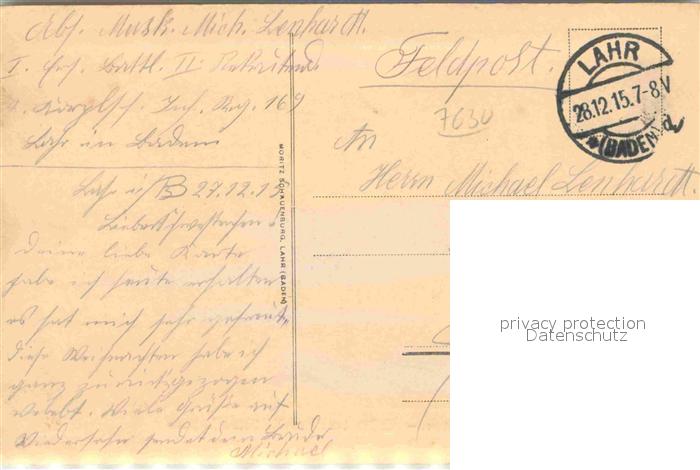 Abs. Musk. Mich. Lenhardt.
I. Ers. Battl. II. Rekruten
Korplsch. Inf. Reg. 169
Lahr in Baden
Lahr i/B 27.12.15
Deine liebe Karte
habe ich heute erhalten
es hat mich sehr gefreut,
diese Weihnachten habe ich
ganz zurückgezogen
verlebt. Viele Grüße auf
Wiedersehen sendet dein Bruder
Michael
MORITZ SCHAUENBURG, LAHR (BADEN)
Feldpost.
7630
LAHR
28.12.15.7-8V
*(BADEN)d
An
Herrn Michael Lenhardt
privacy protection
Datenschutz